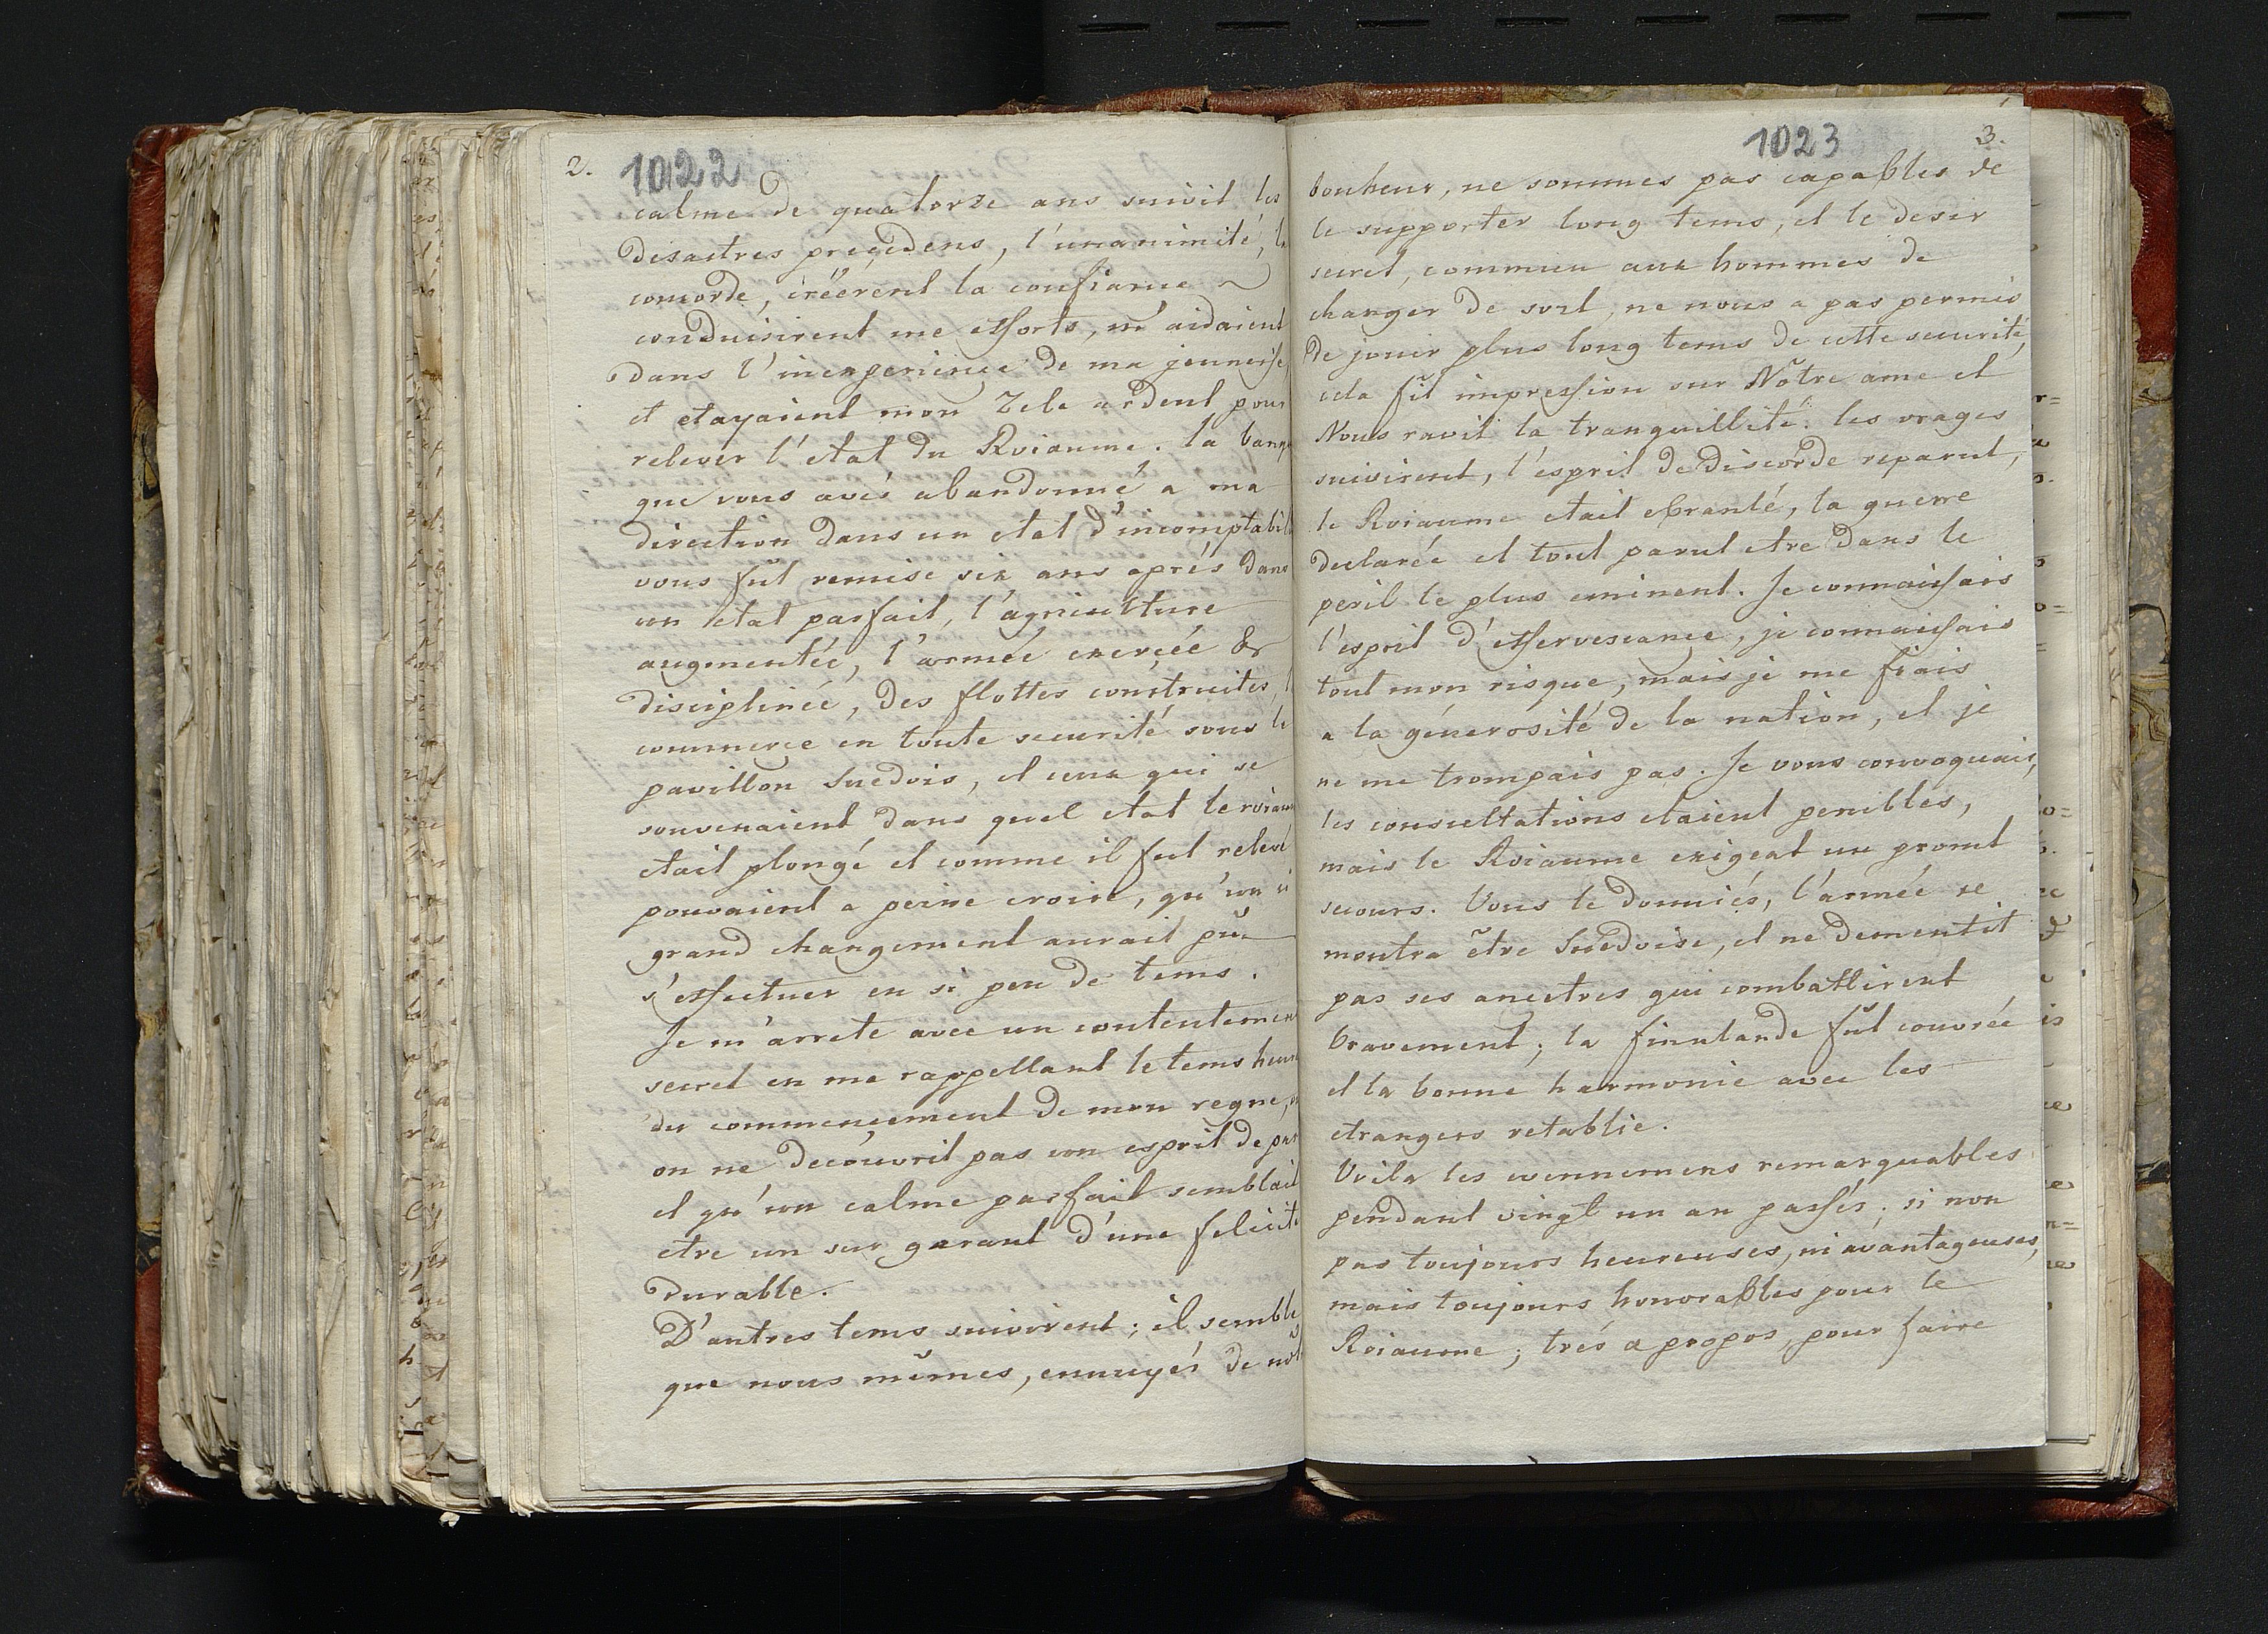 2. 1022
calme de quatorze ans suivit les
desastres preçedens, l'unanimité, la
concorde, créérent la confiance
conduisirent me efforts, m'aidaient
dans l'inexperience de ma jeunesse,
et etayaient mon Zele ardent pour
relever l'etat du Roiaume. la banq
que vous avés abandonné a ma
direction dans un etat d'incomptabil
vous fût remise six ans aprés dans
un etat parfait, l'agriculture
augmentée, l'armée exerçée &
disciplinée, des flottes construites,
commerce en toute securité sous le
pavillon Suedois, et ceux qui se
souvenaient dans quel etat le roiaum
etait plongé et comme il fut relevé
pouvaient a peine croire, qu'un si
grand changement aurait pûe
s'effectuer en si peu de tems.
Je m'arrete avec un contentement
secret en me rappellant le tems heure
du commençement de mon regne,
on ne decouvrit pas un esprit de par
et qu'un calme parfait semblait
etre un sur garant d'une felicité
durable.
D'autres tems suivirent; il semble
que nous mêmes, ennuyés de nôt
1023 3.
bonheur, ne sommes pas capables de
le supporter long tems, et le desir
secret, commun aux hommes de
changer de sort, ne nous a pas permis
de jouir plus long tems de cette securité,
cela fit impression sur Nôtre ame et
Nous ravit la tranquillité. les orages
suivirent, l'esprit de discorde reparut,
le Roiaume etait ebranlé, la guerre
declarée et tout parut etre dans le
peril le plus eminent. Je connaissais
l'esprit d'effervescance, je connaissais
tout mon risque, mais je me fiais
a la génerosité de la nation, et je
ne me trompais pas. Je vous convoquais,
les consultations etaient penibles,
mais le Roiaume exigeat un promt
secours. Vous le donniés, l'armée se
montra être Suedoise, et ne dementit
pas ses ancetres qui combattirent
bravement; la finnlande fût couvrée
et la bonne harmonie avec les
etrangers retablie.
Voila les evennemens remarquables
pendant vingt un an passés; si non
pas toujours heureuses, ni avantageuses,
mais toujours honorables pour le
Roiaume; trés a propos, pour faire